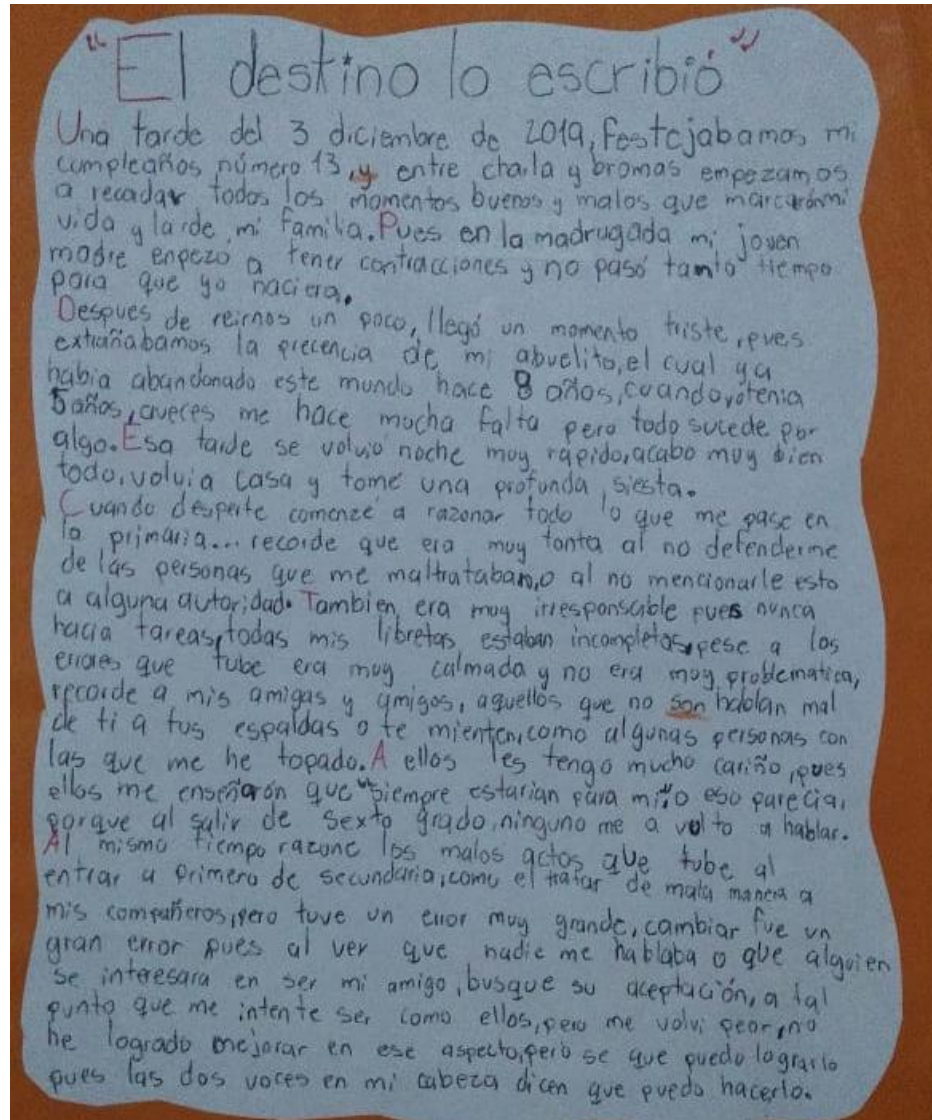 "El destino lo escribió"
Una tarde del 3 diciembre de 2019, festejabamos mi
cumpleaños número 13, y entre charla y bromas empezamos
a recadar todos los momentos buenos y malos que marcarón mi
vida y la de mi familia. Pues en la madrugada mi joven
madre enpezo a tener contracciones y no pasó tanto tiempo
para que yo naciera.
Despues de reirnos un poco, llegó un momento triste, pues
extrañabamos la precencia de mi abuelito, el cual ya
habia abandonado este mundo hace 8 años, cuando yo tenia
5 años, aveces me hace mucha falta pero todo sucede por
algo. Esa tarde se volvio noche muy rápido, acabo muy bien
todo, volvi a casa y tomé una profunda siesta.
Cuando desperte comenzé a razonar todo lo que me pase en
la primaria... recorde que era muy tonta al no defenderme
de las personas que me maltrataban, o al no mencionarle esto
a alguna autoridad. Tambien era muy irresponsable pues nunca
hacia tareas, todas mis libretas estaban incompletas, pese a los
errores que tube era muy calmada y no era muy problematica,
recorde a mis amigas y amigos, aquellos que no son hablan mal
de ti a tus espaldas o te mienten, como algunas personas con
las que me he topado. A ellos les tengo mucho cariño, pues
ellos me enseñarón que "siempre estarian para mi" o eso parecia,
porque al salir de sexto grado, ninguno me a volto a hablar.
Al mismo tiempo razone los malos actos que tube al
entrar a primero de secundaria, como el tratar de mala manera a
mis compañeros, pero tuve un error muy grande, cambiar fue un
gran error pues al ver que nadie me hablaba o que alguien
se interesara en ser mi amigo, busque su aceptación, a tal
punto que me intente ser como ellos, pero me volvi peor, no
he logrado mejorar en ese aspecto, pero se que puedo lograrlo
pues las dos voces en mi cabeza dicen que puedo hacerlo.